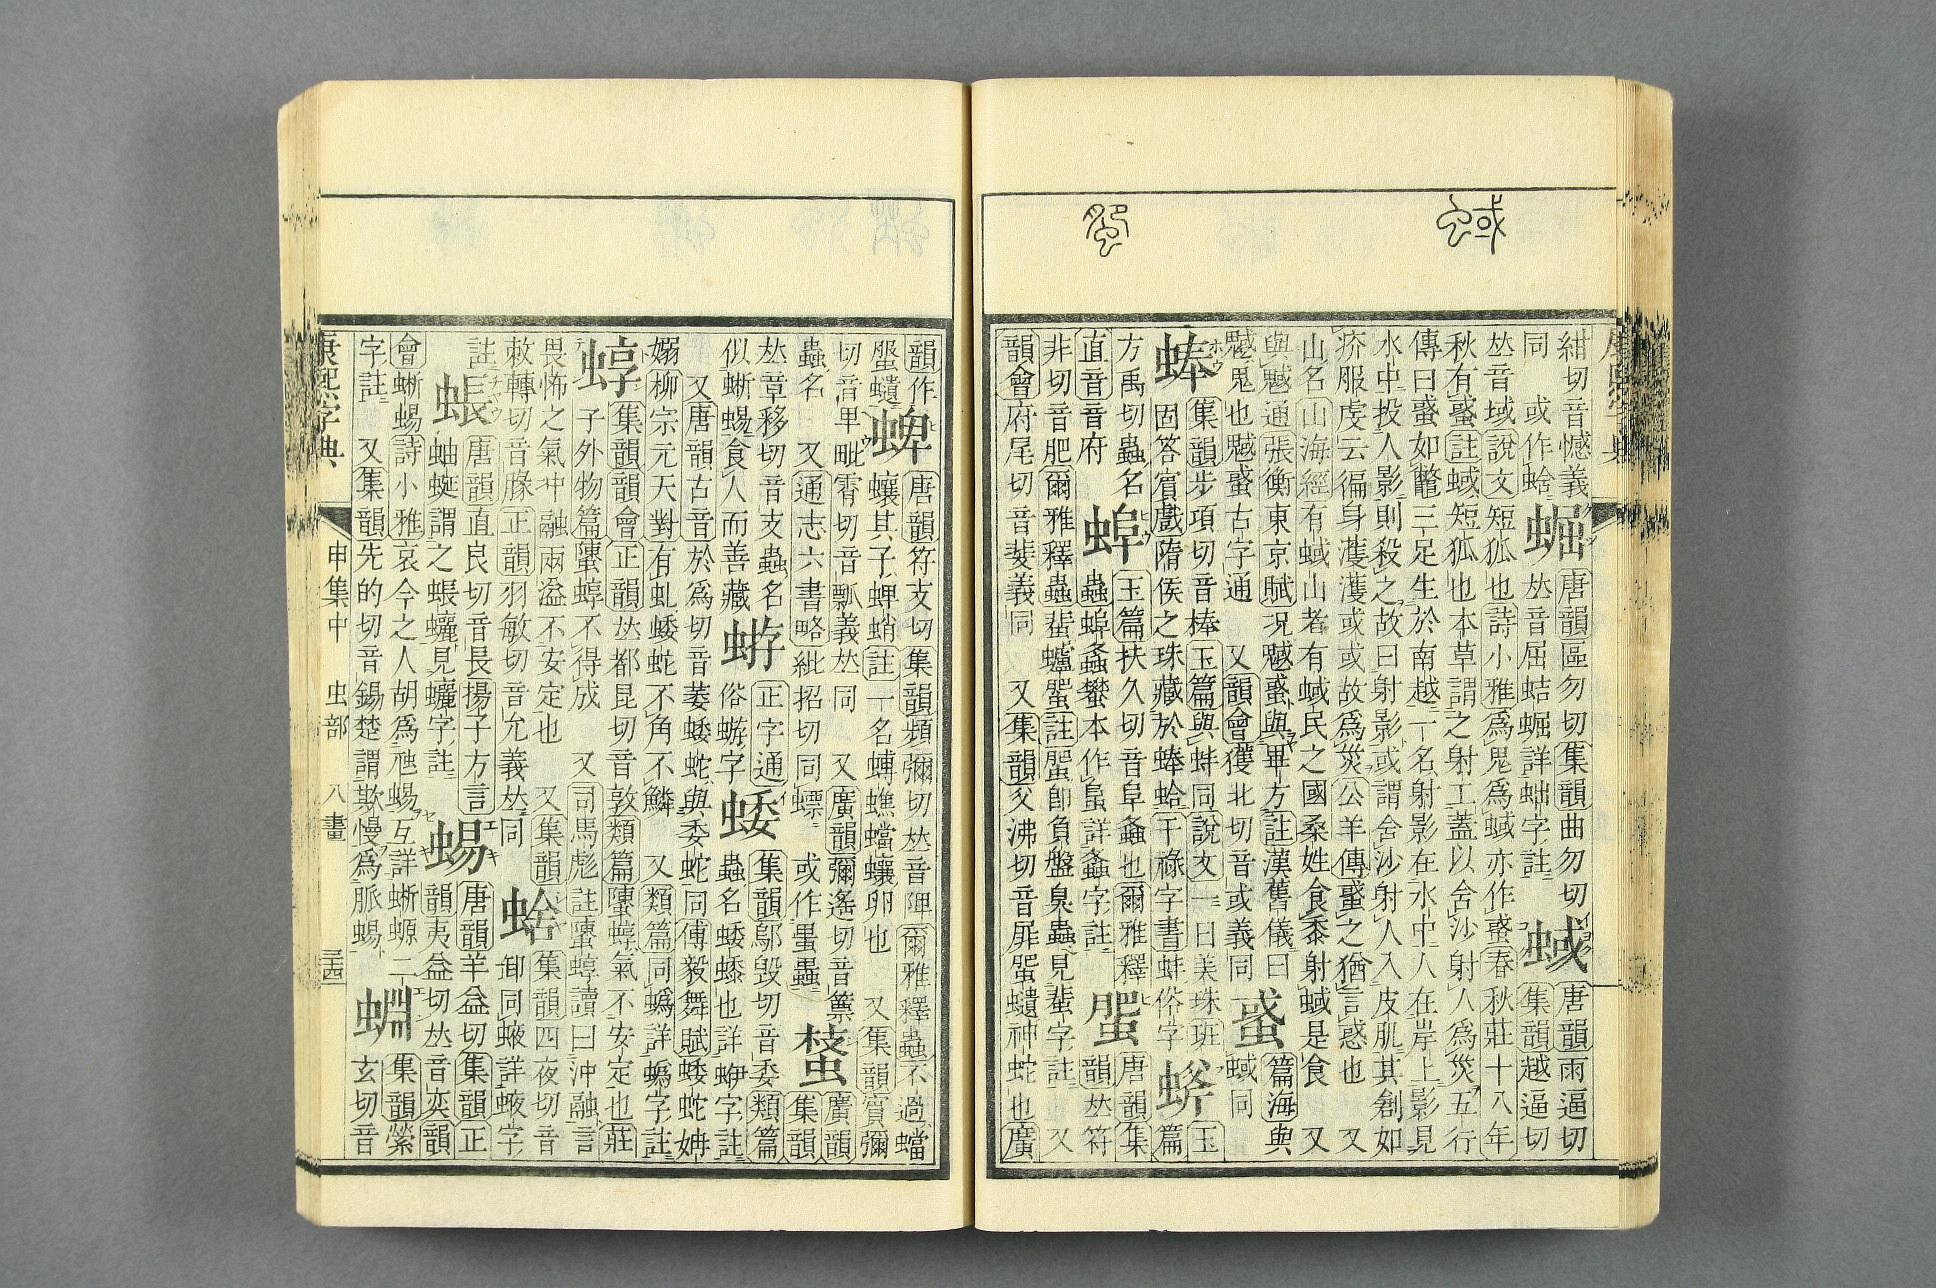 紺切音憾義
同 或作蛿
𧌑
唐韻區勿切集韻曲勿切
𠀤音屈蛣𧌑詳字註
蜮
唐韻雨逼切
集韻越逼切
𠀤音域說文短狐也詩小雅爲鬼爲蜮亦作䘃春秋莊十八年
秋有䘃註蜮短狐也本草謂之射工蓋以含沙射人爲災五行
傳曰䘃如鼈三足生於南越一名射影在水中人在岸上影見
水中投人影則殺之故曰射影或謂含沙射人入皮肌其創如
疥服虔云徧身濩濩或或故爲災公羊傳䘃之猶言惑也 又
山名山海經有蜮山者有蜮民之國桑姓食黍射蜮是食 又
與魊通張衡東京賦況魊䘃與畢方註漢舊儀曰
魊鬼也魊䘃古字通 又韻會獲北切音或義同
䘃
篇海與
蜮同
蜯
集韻步項切音棒玉篇與蚌同說文一曰美珠班
固答賓戲隋侯之珠藏於蜯蛤干祿字書蚌俗字
䗋
玉
篇
方禹切蟲名
直音音府
蜉
玉篇扶久切音阜螽也爾雅釋
蟲蜉螽蠜本作𨸏詳螽字註
蜰
唐韻集
韻𠀤符
非切音肥爾雅釋蟲蜚蠦蜰註蜰卽負盤臭蟲見蜚字註 又
韻會府尾切音斐義同 又集韻父沸切音屝蜰𧔥神蛇也廣
韻作
蜰𧔥
蜱
唐韻符支切集韻頻彌切𠀤音陴爾雅釋蟲不過蟷
蠰其子蜱蛸註一名䗚蟭蟷蠰卵也 又集韻賓彌
切音卑毗霄切音瓢義𠀤同 又廣韻彌遙切音篻
蟲名 又通志六書略紕招切同螵 或作䘃蠯
蝳
廣韻
集韻
𠀤章移切音支蟲名
似蜥蜴食人而善藏
蝣
正字通
俗蝣字
蜲
集韻鄔毀切音委類篇
蟲名蜲蜲也詳蛜字註
又唐韻古音於爲切音萎蜲蛇與委蛇同傅毅舞賦蜲蛇姌
嫋柳宗元天對有虯蜲蛇不角不鱗 又類篇同蟡詳蟡字註
蜳
集韻韻會正韻𠀤都昆切音敦類篇䗥蜳氣不安定也莊
子外物篇䗥蜳不得成 又司馬彪註䗥蜳讀曰沖融言
畏怖之氣沖融兩溢不安定也 又集韻
敕轉切音腞正韻羽敏切音允義𠀤同
䗔
集韻四夜切音
卸同䗔詳䗔字
註
䗅
唐韻直良切音長揚子方言
蚰蜒謂之䗅䗳見䗳字註
蜴
唐韻羊益切集韻正
韻夷益切𠀤音奕韻
會蜥蜴詩小雅哀今之人胡爲虺蜴互詳蜥螈二
字註 又集韻先的切音錫楚謂欺慢爲脈蜴
蜵
集韻縈
玄切音
康熙字典
申集中 虫部 八畫